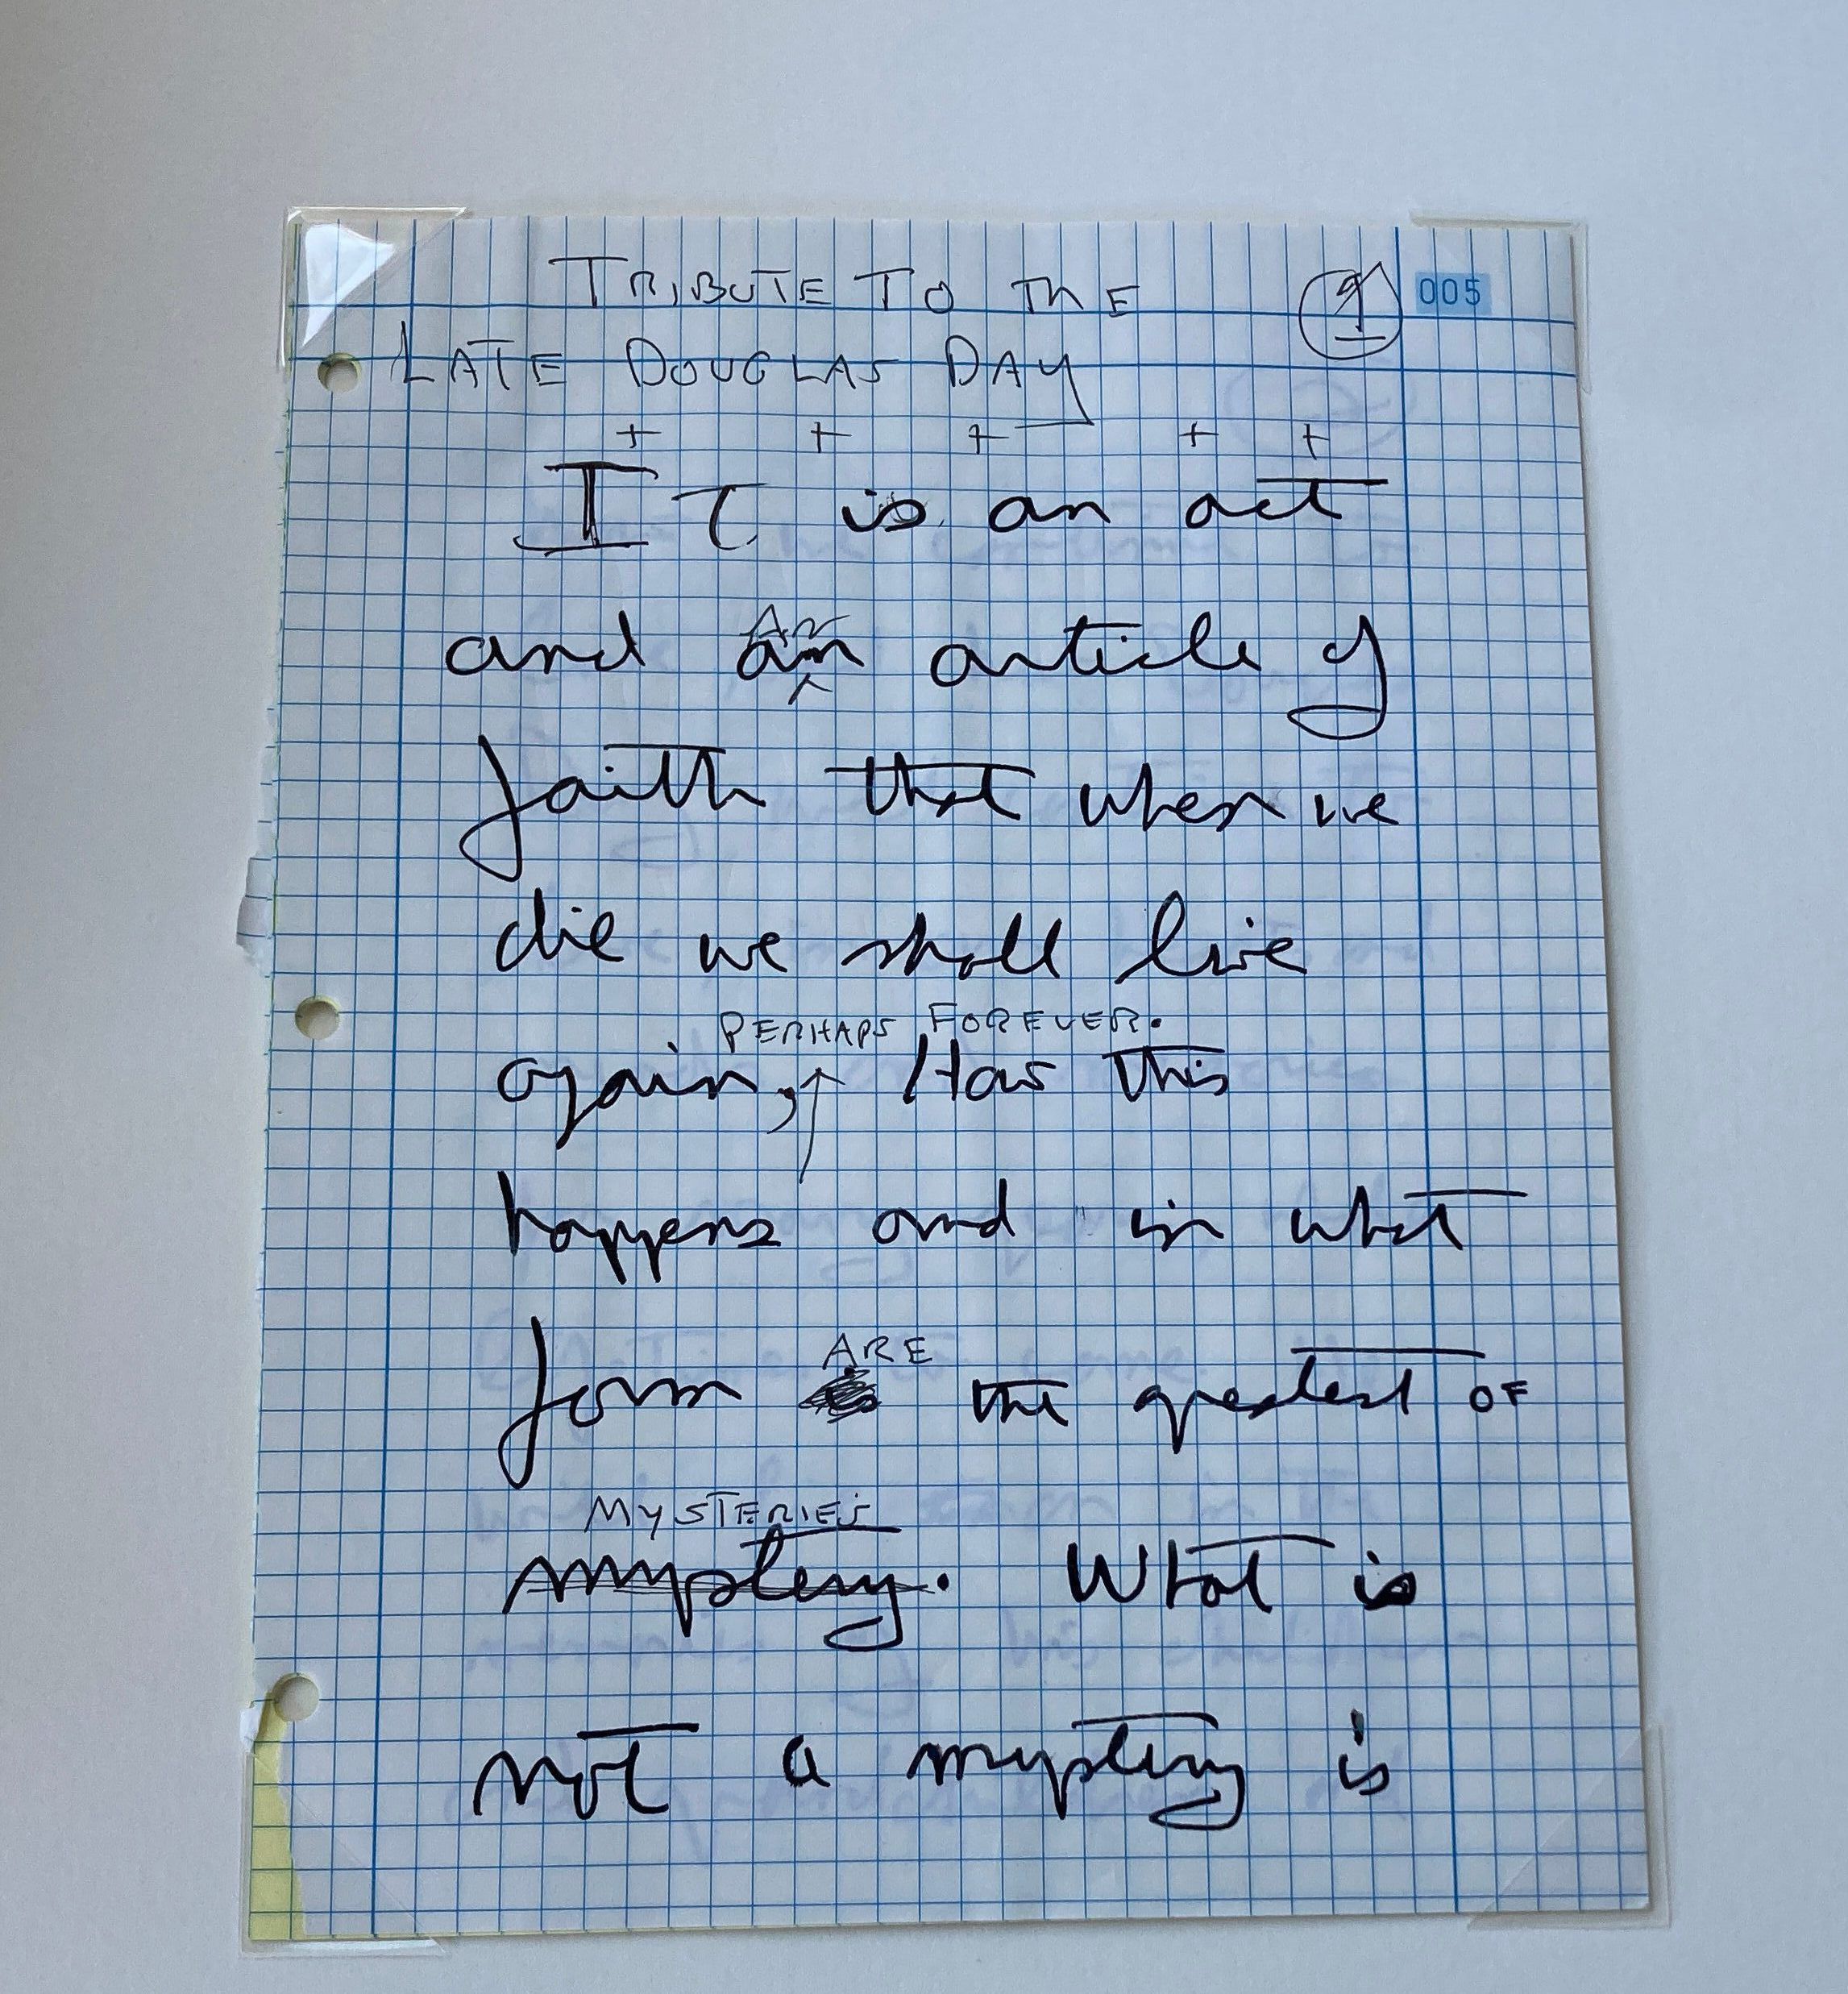 TRIBUTE TO THE
1
005
LATE DOUGLAS DAY
+ + + + +
IT is an act
and an article of
An
faith that when we
die we shall live
PERHAPS FOREVER.
again, How this
happens and in what
ARE
form the greatest OF
MYSTERIES
mystery. What is
not a mystery is